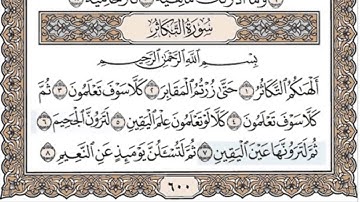 وَمَآ أَدْرَىٰكَ مَا هِيَهْ ۝١٠ نَارٌ حَامِيَةٌۢ ۝١١
سُورَةُ التَّكَاثُرِ
بِسْمِ ٱللَّهِ ٱلرَّحْمَٰنِ ٱلرَّحِيمِ
أَلْهَىٰكُمُ ٱلتَّكَاثُرُ ۝١ حَتَّىٰ زُرْتُمُ ٱلْمَقَابِرَ ۝٢ كَلَّا سَوْفَ تَعْلَمُونَ ۝٣ ثُمَّ
كَلَّا سَوْفَ تَعْلَمُونَ ۝٤ كَلَّا لَوْ تَعْلَمُونَ عِلْمَ ٱلْيَقِينِ ۝٥ لَتَرَوُنَّ ٱلْجَحِيمَ ۝٦
ثُمَّ لَتَرَوُنَّهَا عَيْنَ ٱلْيَقِينِ ۝٧ ثُمَّ لَتُسْـَٔلُنَّ يَوْمَئِذٍ عَنِ ٱلنَّعِيمِ ۝٨
٦٠٠